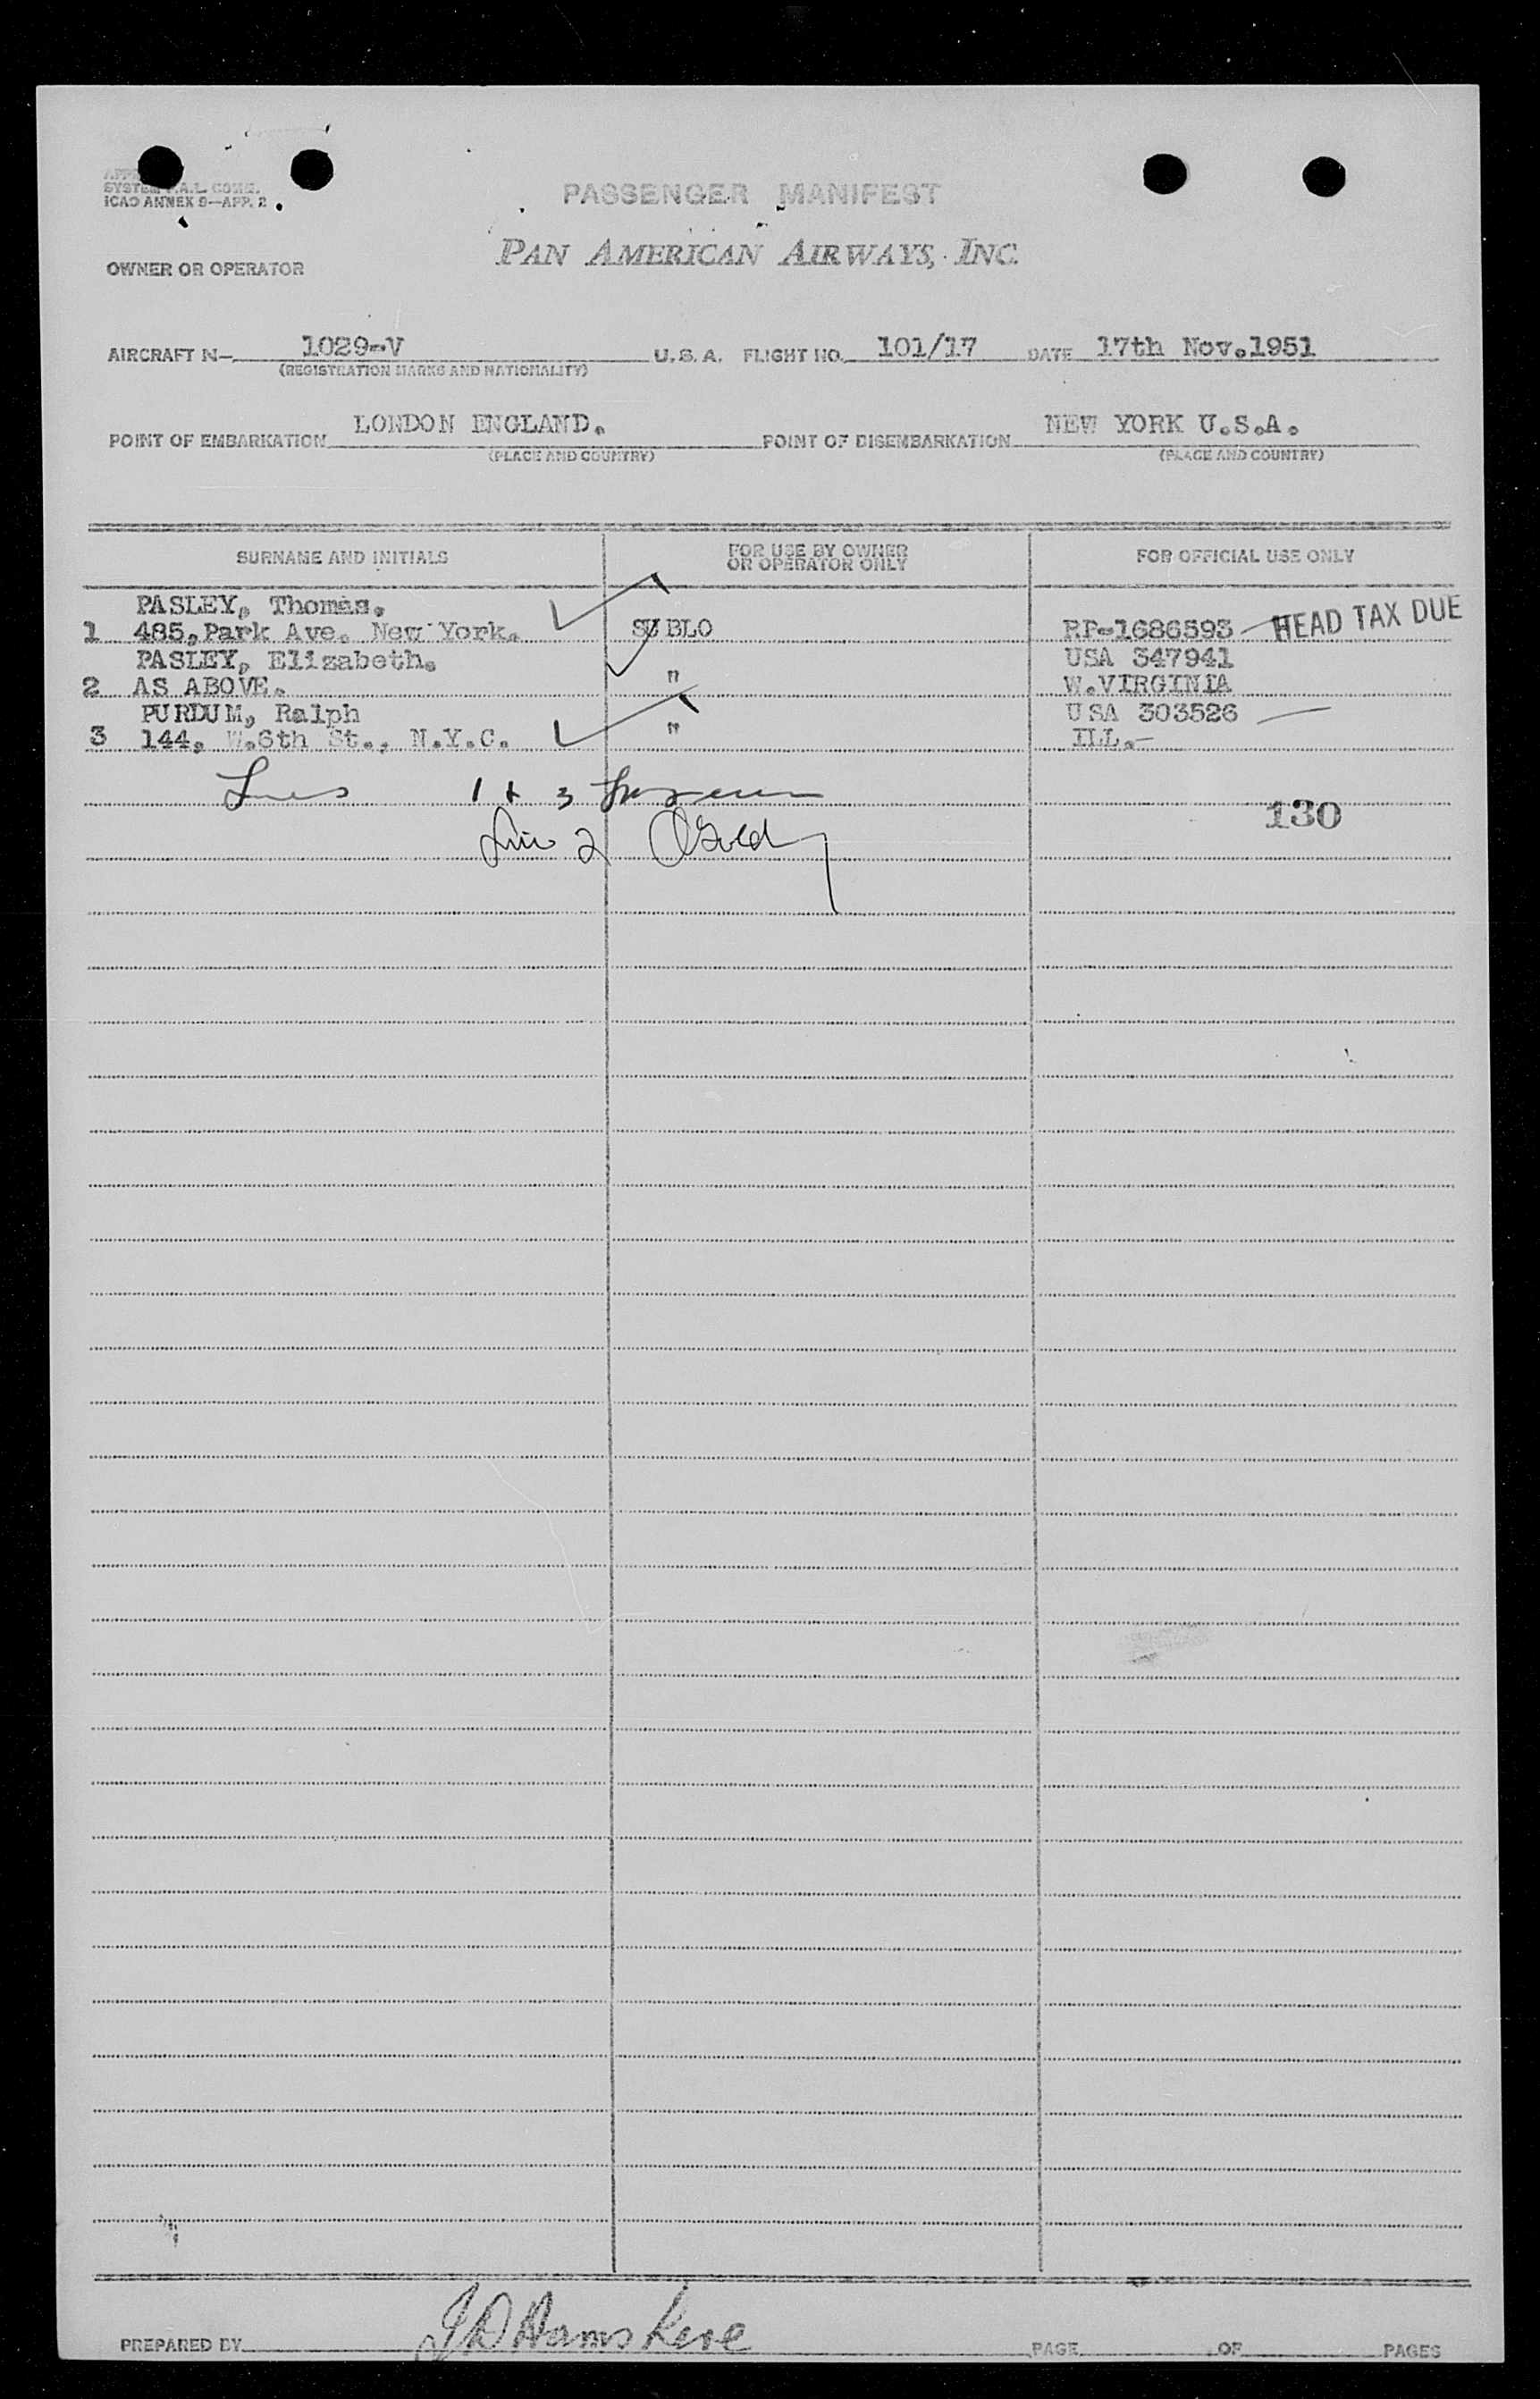 SYSTEM F.A.L. COMM.
ICAO ANNEX 9—APP. 2
PASSENGER MANIFEST
PAN AMERICAN AIRWAYS, INC.
OWNER OR OPERATOR
AIRCRAFT N— 1029-V U.S.A. FLIGHT NO. 101/17 DATE 17th Nov.1951
(REGISTRATION MARKS AND NATIONALITY)
POINT OF EMBARKATION LONDON ENGLAND. POINT OF DISEMBARKATION NEW YORK U.S.A.
(PLACE AND COUNTRY) (PLACE AND COUNTRY)
SURNAME AND INITIALS FOR USE BY OWNER OR OPERATOR ONLY FOR OFFICIAL USE ONLY
PASLEY, Thomas.
1 485,Park Ave. New York. SU BLO RP-1686593 HEAD TAX DUE
PASLEY, Elizabeth. USA 347941
2 AS ABOVE. " W.VIRGINIA
PURDUM, Ralph USA 303526
3 144, W.6th St., N.Y.C. " ILL.-
Lines 1 & 3
130
Line 2
PREPARED BY PAGE OF PAGES